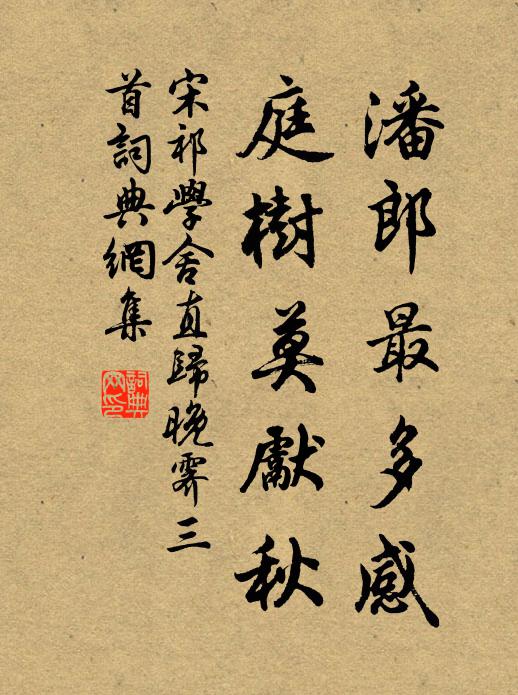 潘郎最多感
庭樹莫獻秋
宋祁學舍直歸晚霽三
首詞典網集
詞典
网印